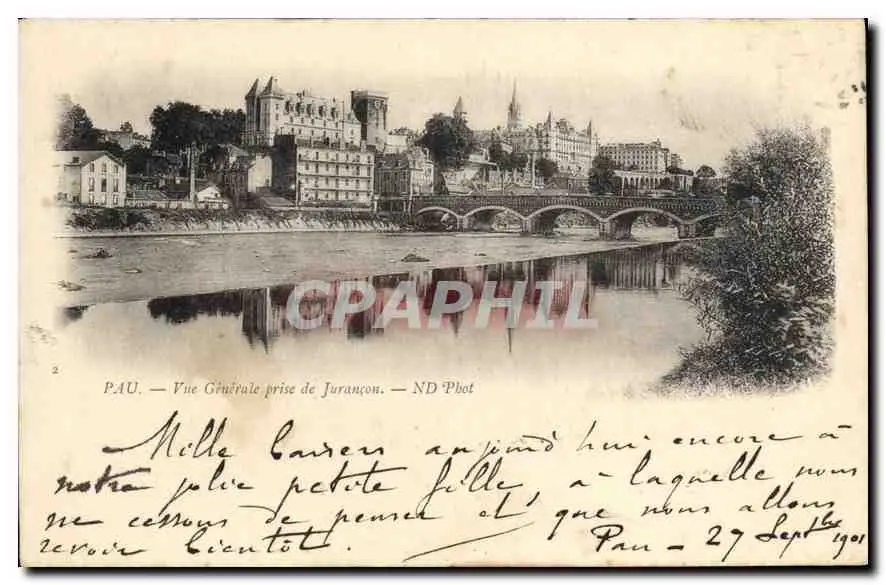 CPAPHIL
2
PAU. — Vue Générale prise de Jurançon. — ND Phot
Mille baisers aujourd'hui encore à
notre jolie petite fille à laquelle nous
ne cessons de penser et que nous allons
revoir bientôt.
Pau – 27 Septbre 1901